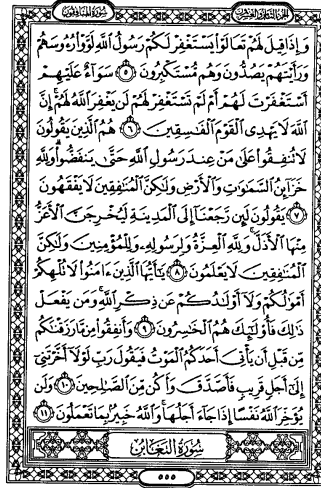 سورة المنافقون
الجزء الثامن والعشرون
وَإِذَا قِيلَ لَهُمْ تَعَالَوْا۟ يَسْتَغْفِرْ لَكُمْ رَسُولُ ٱللَّهِ لَوَّوْا۟ رُءُوسَهُمْ
وَرَأَيْتَهُمْ يَصُدُّونَ وَهُم مُّسْتَكْبِرُونَ ٥ سَوَآءٌ عَلَيْهِمْ
أَسْتَغْفَرْتَ لَهُمْ أَمْ لَمْ تَسْتَغْفِرْ لَهُمْ لَن يَغْفِرَ ٱللَّهُ لَهُمْ إِنَّ
ٱللَّهَ لَا يَهْدِى ٱلْقَوْمَ ٱلْفَٰسِقِينَ ٦ هُمُ ٱلَّذِينَ يَقُولُونَ
لَا تُنفِقُوا۟ عَلَىٰ مَنْ عِندَ رَسُولِ ٱللَّهِ حَتَّىٰ يَنفَضُّوا۟ وَلِلَّهِ
خَزَآئِنُ ٱلسَّمَٰوَٰتِ وَٱلْأَرْضِ وَلَٰكِنَّ ٱلْمُنَٰفِقِينَ لَا يَفْقَهُونَ
٧ يَقُولُونَ لَئِن رَّجَعْنَآ إِلَى ٱلْمَدِينَةِ لَيُخْرِجَنَّ ٱلْأَعَزُّ
مِنْهَا ٱلْأَذَلَّ وَلِلَّهِ ٱلْعِزَّةُ وَلِرَسُولِهِۦ وَلِلْمُؤْمِنِينَ وَلَٰكِنَّ
ٱلْمُنَٰفِقِينَ لَا يَعْلَمُونَ ٨ يَٰٓأَيُّهَا ٱلَّذِينَ ءَامَنُوا۟ لَا تُلْهِكُمْ
أَمْوَٰلُكُمْ وَلَآ أَوْلَٰدُكُمْ عَن ذِكْرِ ٱللَّهِ وَمَن يَفْعَلْ
ذَٰلِكَ فَأُو۟لَٰٓئِكَ هُمُ ٱلْخَٰسِرُونَ ٩ وَأَنفِقُوا۟ مِن مَّا رَزَقْنَٰكُم
مِّن قَبْلِ أَن يَأْتِىَ أَحَدَكُمُ ٱلْمَوْتُ فَيَقُولَ رَبِّ لَوْلَآ أَخَّرْتَنِىٓ
إِلَىٰٓ أَجَلٍ قَرِيبٍ فَأَصَّدَّقَ وَأَكُن مِّنَ ٱلصَّٰلِحِينَ ١٠ وَلَن
يُؤَخِّرَ ٱللَّهُ نَفْسًا إِذَا جَآءَ أَجَلُهَا وَٱللَّهُ خَبِيرٌۢ بِمَا تَعْمَلُونَ ١١
سورة التغابن
٥٥٥